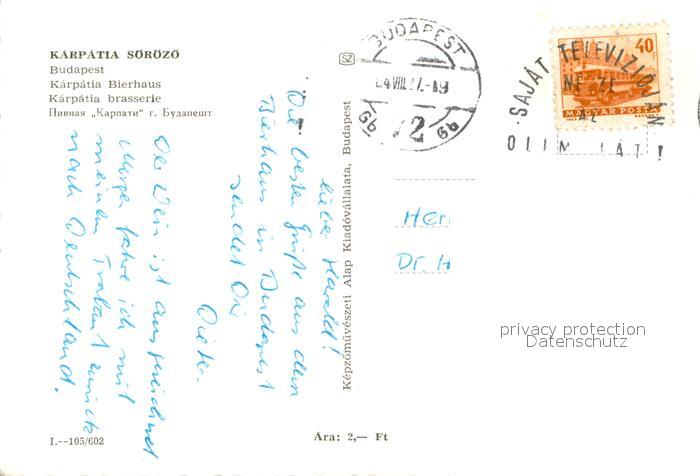 KÁRPÁTIA SÖRÖZŐ
Budapest
Kárpátia Bierhaus
Kárpátia brasserie
Пивная „Карпати" г. Будапешт
Lieber Harald!
Die besten Grüße aus dem
Bierhaus in Budapest
sendet Dir
Dieter.
Der Wein ist ausgezeichnet.
Morgen fahre ich mit
meinem Trabant zurück
nach Deutschland.
SZ
Képzőművészeti Alap Kiadóvállalata, Budapest
BUDAPEST
72
SAJÁT TELEVIZIÓJÁN
NÉZZE
AZ
OLIMPIÁT!
40
MAGYAR POSTA
Herr
Dr. H
privacy protection
Datenschutz
I.--105/602
Ára: 2,— Ft